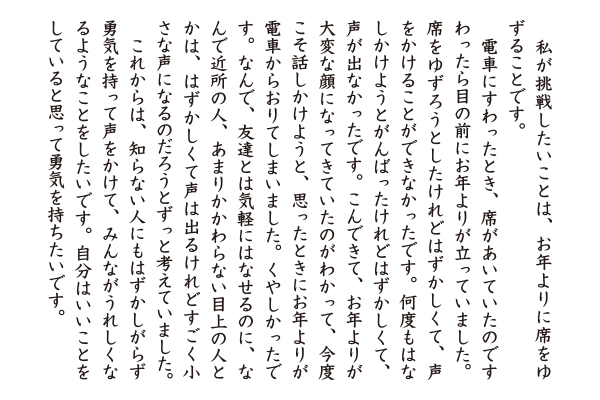 私が挑戦したいことは、お年よりに席をゆ
ずることです。
電車にすわったとき、席があいていたのです
わったら目の前にお年よりが立っていました。
席をゆずろうとしたけれどはずかしくて、声
をかけることができなかったです。何度もはな
しかけようとがんばったけれどはずかしくて、
声が出なかったです。こんできて、お年よりが
大変な顔になってきていたのがわかって、今度
こそ話しかけようと、思ったときにお年よりが
電車からおりてしまいました。くやしかったで
す。なんで、友達とは気軽にはなせるのに、な
んで近所の人、あまりかかわらない目上の人と
かは、はずかしくて声は出るけれどすごく小
さな声になるのだろうとずっと考えていました。
これからは、知らない人にもはずかしがらず
勇気を持って声をかけて、みんながうれしくな
るようなことをしたいです。自分はいいことを
していると思って勇気を持ちたいです。